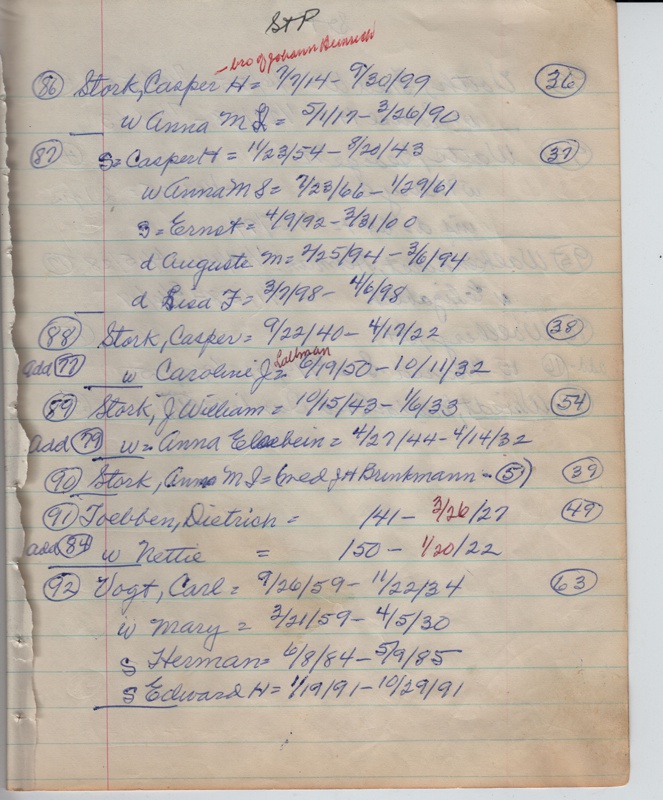 S+P
bro of Johann Heinrich
86 Stork, Casper H = 7/7/14 - 9/30/99 36
w Anna M L = 5/1/17 - 3/26/90
87 S = Casper H = 11/23/54 - 8/20/43 37
w Anna M S = 7/23/66 - 1/29/61
S = Ernst = 4/9/92 - 3/31/00
d Auguste M = 2/25/94 - 3/6/94
d Lisa F = 3/7/98 - 4/6/98
88 Stork, Casper = 9/22/40 - 4/17/22 38
Lallman
add 77 w Caroline J = 6/19/50 - 10/11/32
89 Stork, J William = 10/15/43 - 1/6/33 54
add 79 w = Anna Elsebein = 4/27/44 - 4/14/32
90 Stork, Anna M I = (med J H Brinkmann - 5) 39
91 Toebben, Dietrich = /41 - 3/26/27 49
add 84 w Nettie = /50 - 1/20/22
92 Vogt, Carl = 9/26/59 - 11/22/34 63
w Mary = 3/21/59 - 4/5/30
S Herman = 6/8/84 - 5/9/85
S Edward H = 1/19/91 - 10/29/91